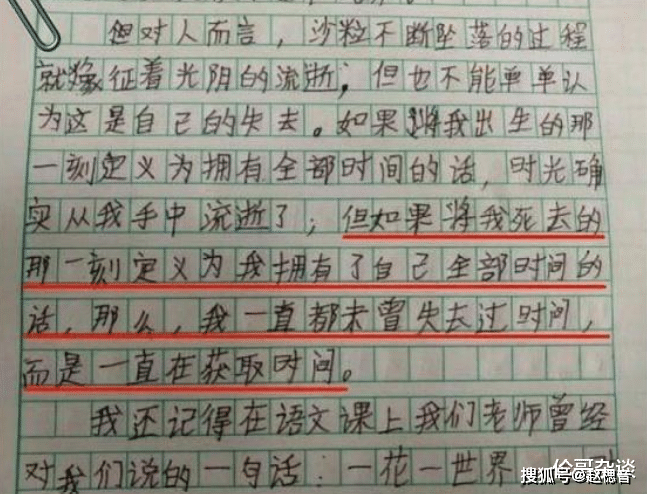 但对人而言，沙粒不断坠落的过程
就像征着光阴的流逝；但也不能单单认
为这是自己的失去。如果将我出生的那
一刻定义为拥有全部时间的话，时光确
实从我手中流逝了；但如果将我死去的
那一刻定义为我拥有了自己全部时间的
话，那么，我一直都未曾失去过时间，
而是一直在获取时间。
我还记得在语文课上我们老师曾经
对我们说的一句话：一花一世界
伦哥杂谈
搜狐号@赵德春